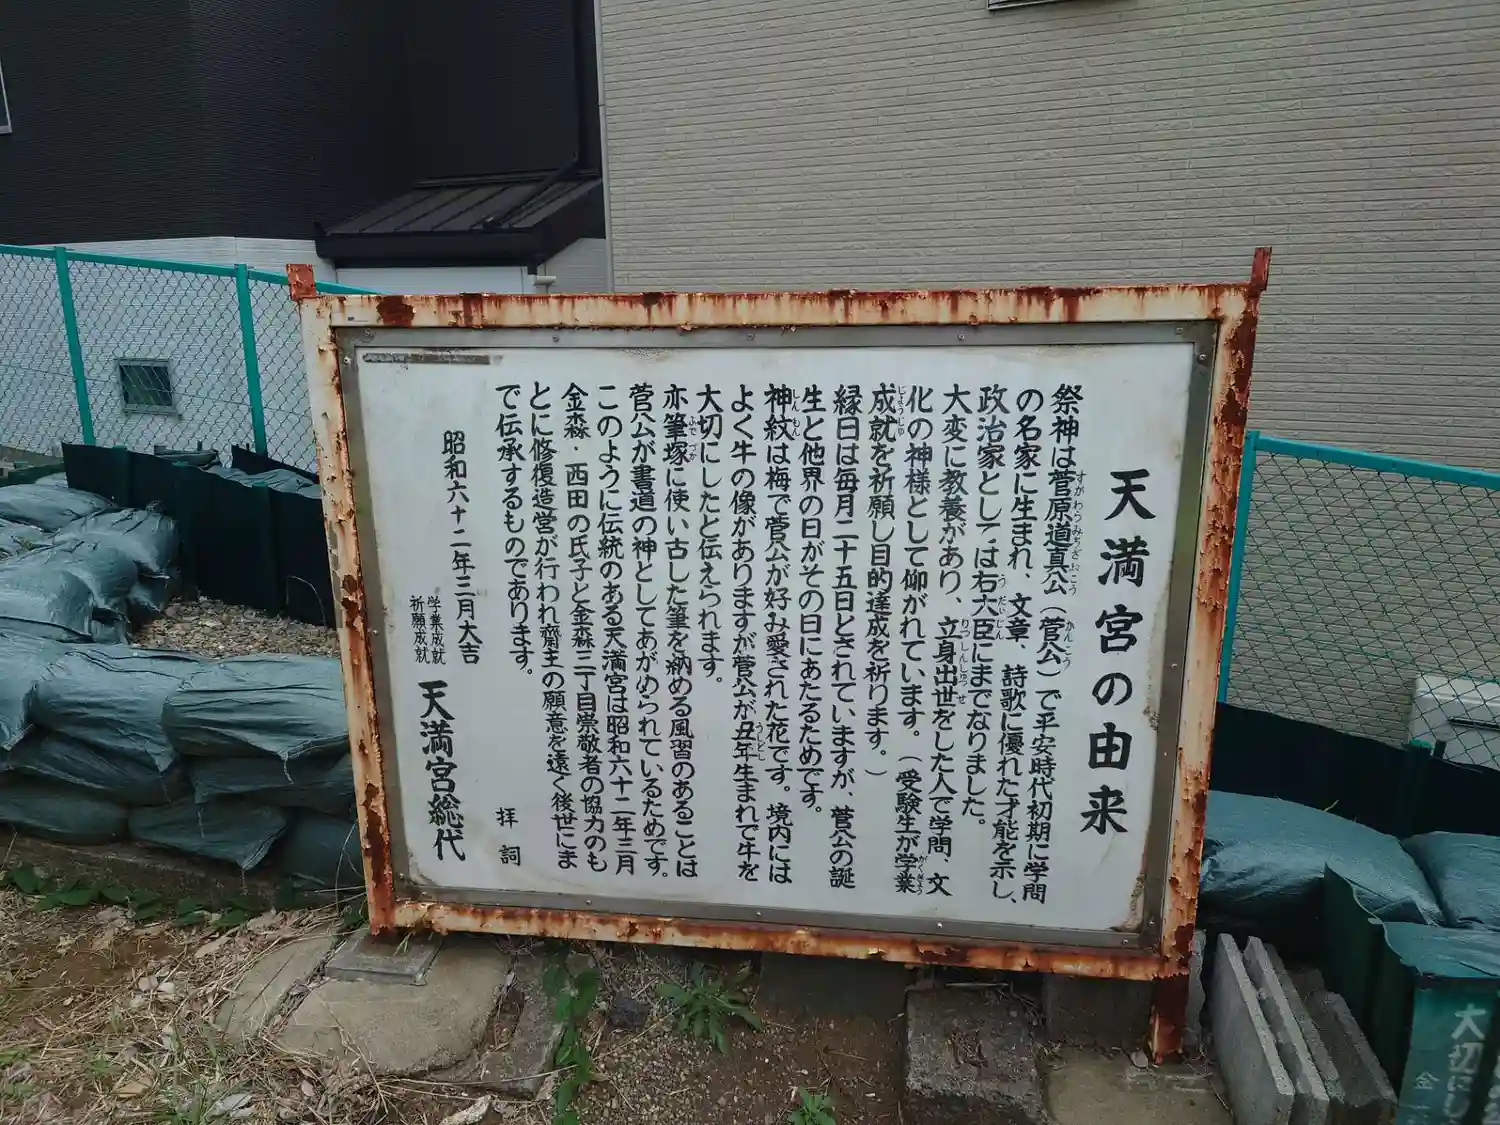 天満宮の由来
祭神は菅原道真公（菅公）で平安時代初期に学問
の名家に生まれ、文章、詩歌に優れた才能を示し、
政治家としては右大臣にまでなりました。
大変に教養があり、立身出世をした人で学問、文
化の神様として仰がれています。（受験生が学業
成就を祈願し目的達成を祈ります。）
縁日は毎月二十五日とされていますが、菅公の誕
生と他界の日がその日にあたるためです。
神紋は梅で菅公が好み愛された花です。境内には
よく牛の像がありますが菅公が丑年生まれで牛を
大切にしたと伝えられます。
亦筆塚に使い古した筆を納める風習のあることは
菅公が書道の神としてあがめられているためです。
このように伝統のある天満宮は昭和六十二年三月
金森・西田の氏子と金森三丁目崇敬者の協力のも
とに修復造営が行われ齋主の願意を遠く後世にま
で伝承するものであります。
拝詞
昭和六十二年三月大吉
学業成就
祈願成就
天満宮総代
大切に
金